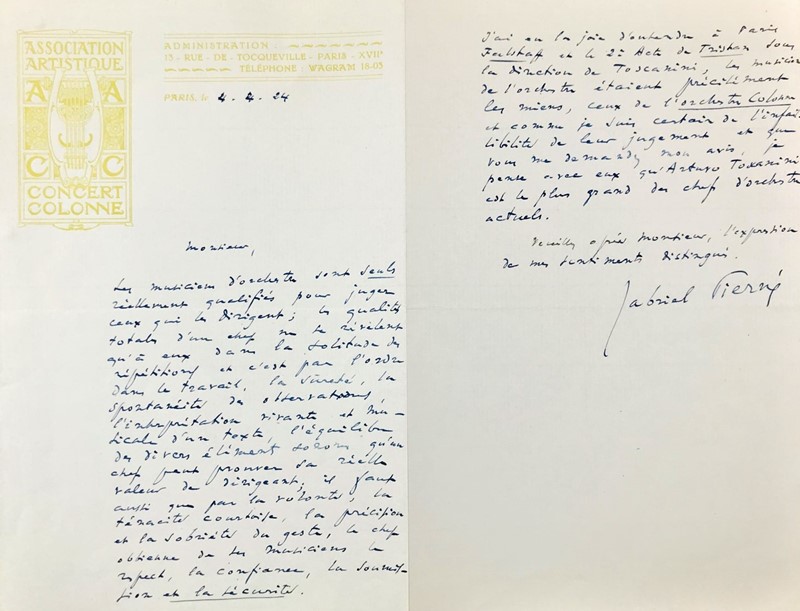 ASSOCIATION
ARTISTIQUE
A A
C C
CONCERT
COLONNE
ADMINISTRATION
13 - RUE - DE - TOCQUEVILLE - PARIS - XVIIe
TÉLÉPHONE - WAGRAM 18-03
PARIS, le 4. 4. 24
Monsieur,
Les musiciens d'orchestre sont seuls
réellement qualifiés pour juger
ceux qui les dirigent; les qualités
totales d'un chef ne se révèlent
qu'à eux dans la solitude des
répétitions et c'est par l'ordre
dans le travail, la sûreté, la
spontanéité des observations,
l'interprétation vivante et mu-
sicale d'un texte, l'équilibre
des divers élément sonores qu'un
chef peut prouver sa réelle
valeur de dirigeant; il faut
aussi que par la volonté, la
ténacité courtoise, la précision
et la sobriété du geste, le chef
obtienne de ses musiciens le
respect, la confiance, la soumis-
sion et la sécurité.
J'ai eu la joie d'entendre à Paris
Falstaff et le 2e Acte de Tristan sous
la direction de Toscanini, les musiciens
de l'orchestre étaient précisément
les miens, ceux de l'orchestre Colonne
et comme je suis certain de l'infail-
libilité de leur jugement et que
vous me demandez mon avis, je
pense avec eux qu'Arturo Toscanini
est le plus grand des chef d'orchestre
actuels.
Veuillez agréer Monsieur, l'expression
de mes sentiments distingués.
Gabriel Pierné